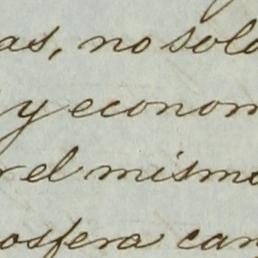 as, no solo
y econom
r el mismo
osfera car